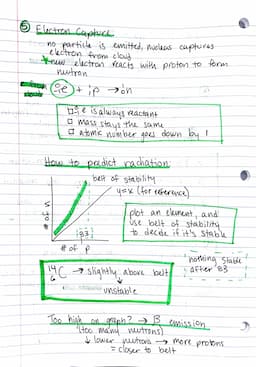 ⑤ Electron Capture
no particle is emitted, nucleus captures
electron from cloud
new electron reacts with proton to form
neutron
⁰₋₁e + ¹₁p → ¹₀n
e is always reactant
mass stays the same
atomic number goes down by 1
How to predict radiation:
belt of stability
y=x (for reference)
# of N
83
# of P
plot an element, and
use belt of stability
to decide if it's stable
nothing stable
after 83
¹⁴₆C → slightly above belt
unstable
Too high on graph? → β emission
(too many neutrons)
↓ lower neutrons → more protons
= closer to belt